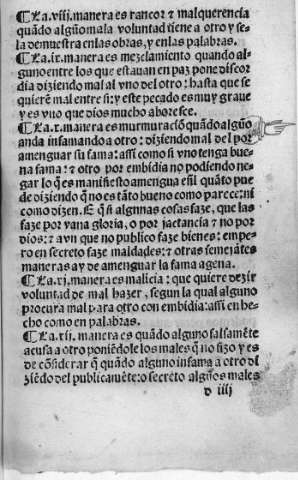 ¶ La.viij.manera es rancor ⁊ malquerencia
quãdo algũo mala voluntad tiene a otro y se
la demuestra en las obras, y en las palabras.
¶ La.ix.manera es mezclamiento quando al-
guno entre los que estauan en paz pone discor
dia diziendo mal al vno del otro: hasta que se
quierẽ mal entre si: y este pecado es muy graue
y es vno que dios mucho aborresce.
¶ La.x.manera es murmuraciõ quãdo algũo
anda infamando a otro: diziendo mal del por
amenguar su fama: assi como si vno tenga bue-
na fama: ⁊ otro por embidia no podiendo ne-
gar lo q̃ es manifiesto amengua en quãto pue
de diziendo q̃ no es tãto bueno como parece: ni
como dizen. E q̃ si algunas cosas faze, que las
faze por vana gloria, o por jactancia ⁊ no por
dios: ⁊ avn que no publico faze bienes: empe-
ro en secreto faze maldades: ⁊ otras semejãtes
maneras ay de amenguar la fama agena.
¶ La.xj.manera es malicia: que quiere dezir
voluntad de mal hazer, segun la qual alguno
procura mal para otro con embidia: assi en he-
cho como en palabras.
¶ La.xij. manera es quãdo alguno falsamẽte
acusa a otro poniẽdole los males q̃ no fizo y es
de cõsiderar q̃ quãdo alguno infama a otro di
ziẽdo del publicamẽte: o secreto algũos males
d iiij